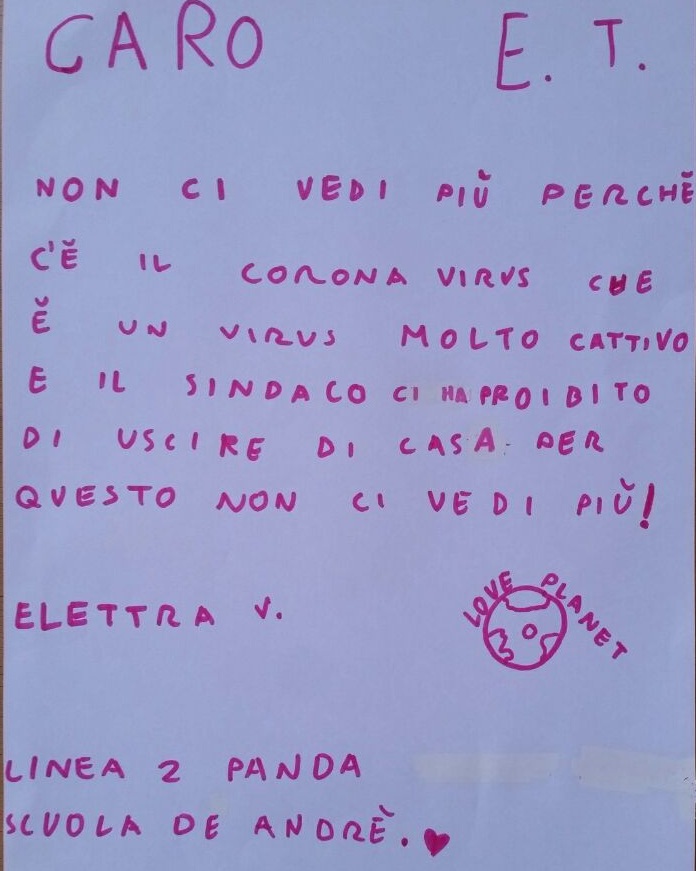 CARO E. T.
NON CI VEDI PIŬ PERCHĔ
C'Ĕ IL CORONA VIRUS CHE
Ĕ UN VIRUS MOLTO CATTIVO
E IL SINDACO CI HA PROIBITO
DI USCIRE DI CASA. PER
QUESTO NON CI VEDI PIŬ!
ELETTRA V.
LOVE PLANET
LINEA 2 PANDA
SCUOLA DE ANDRÈ.